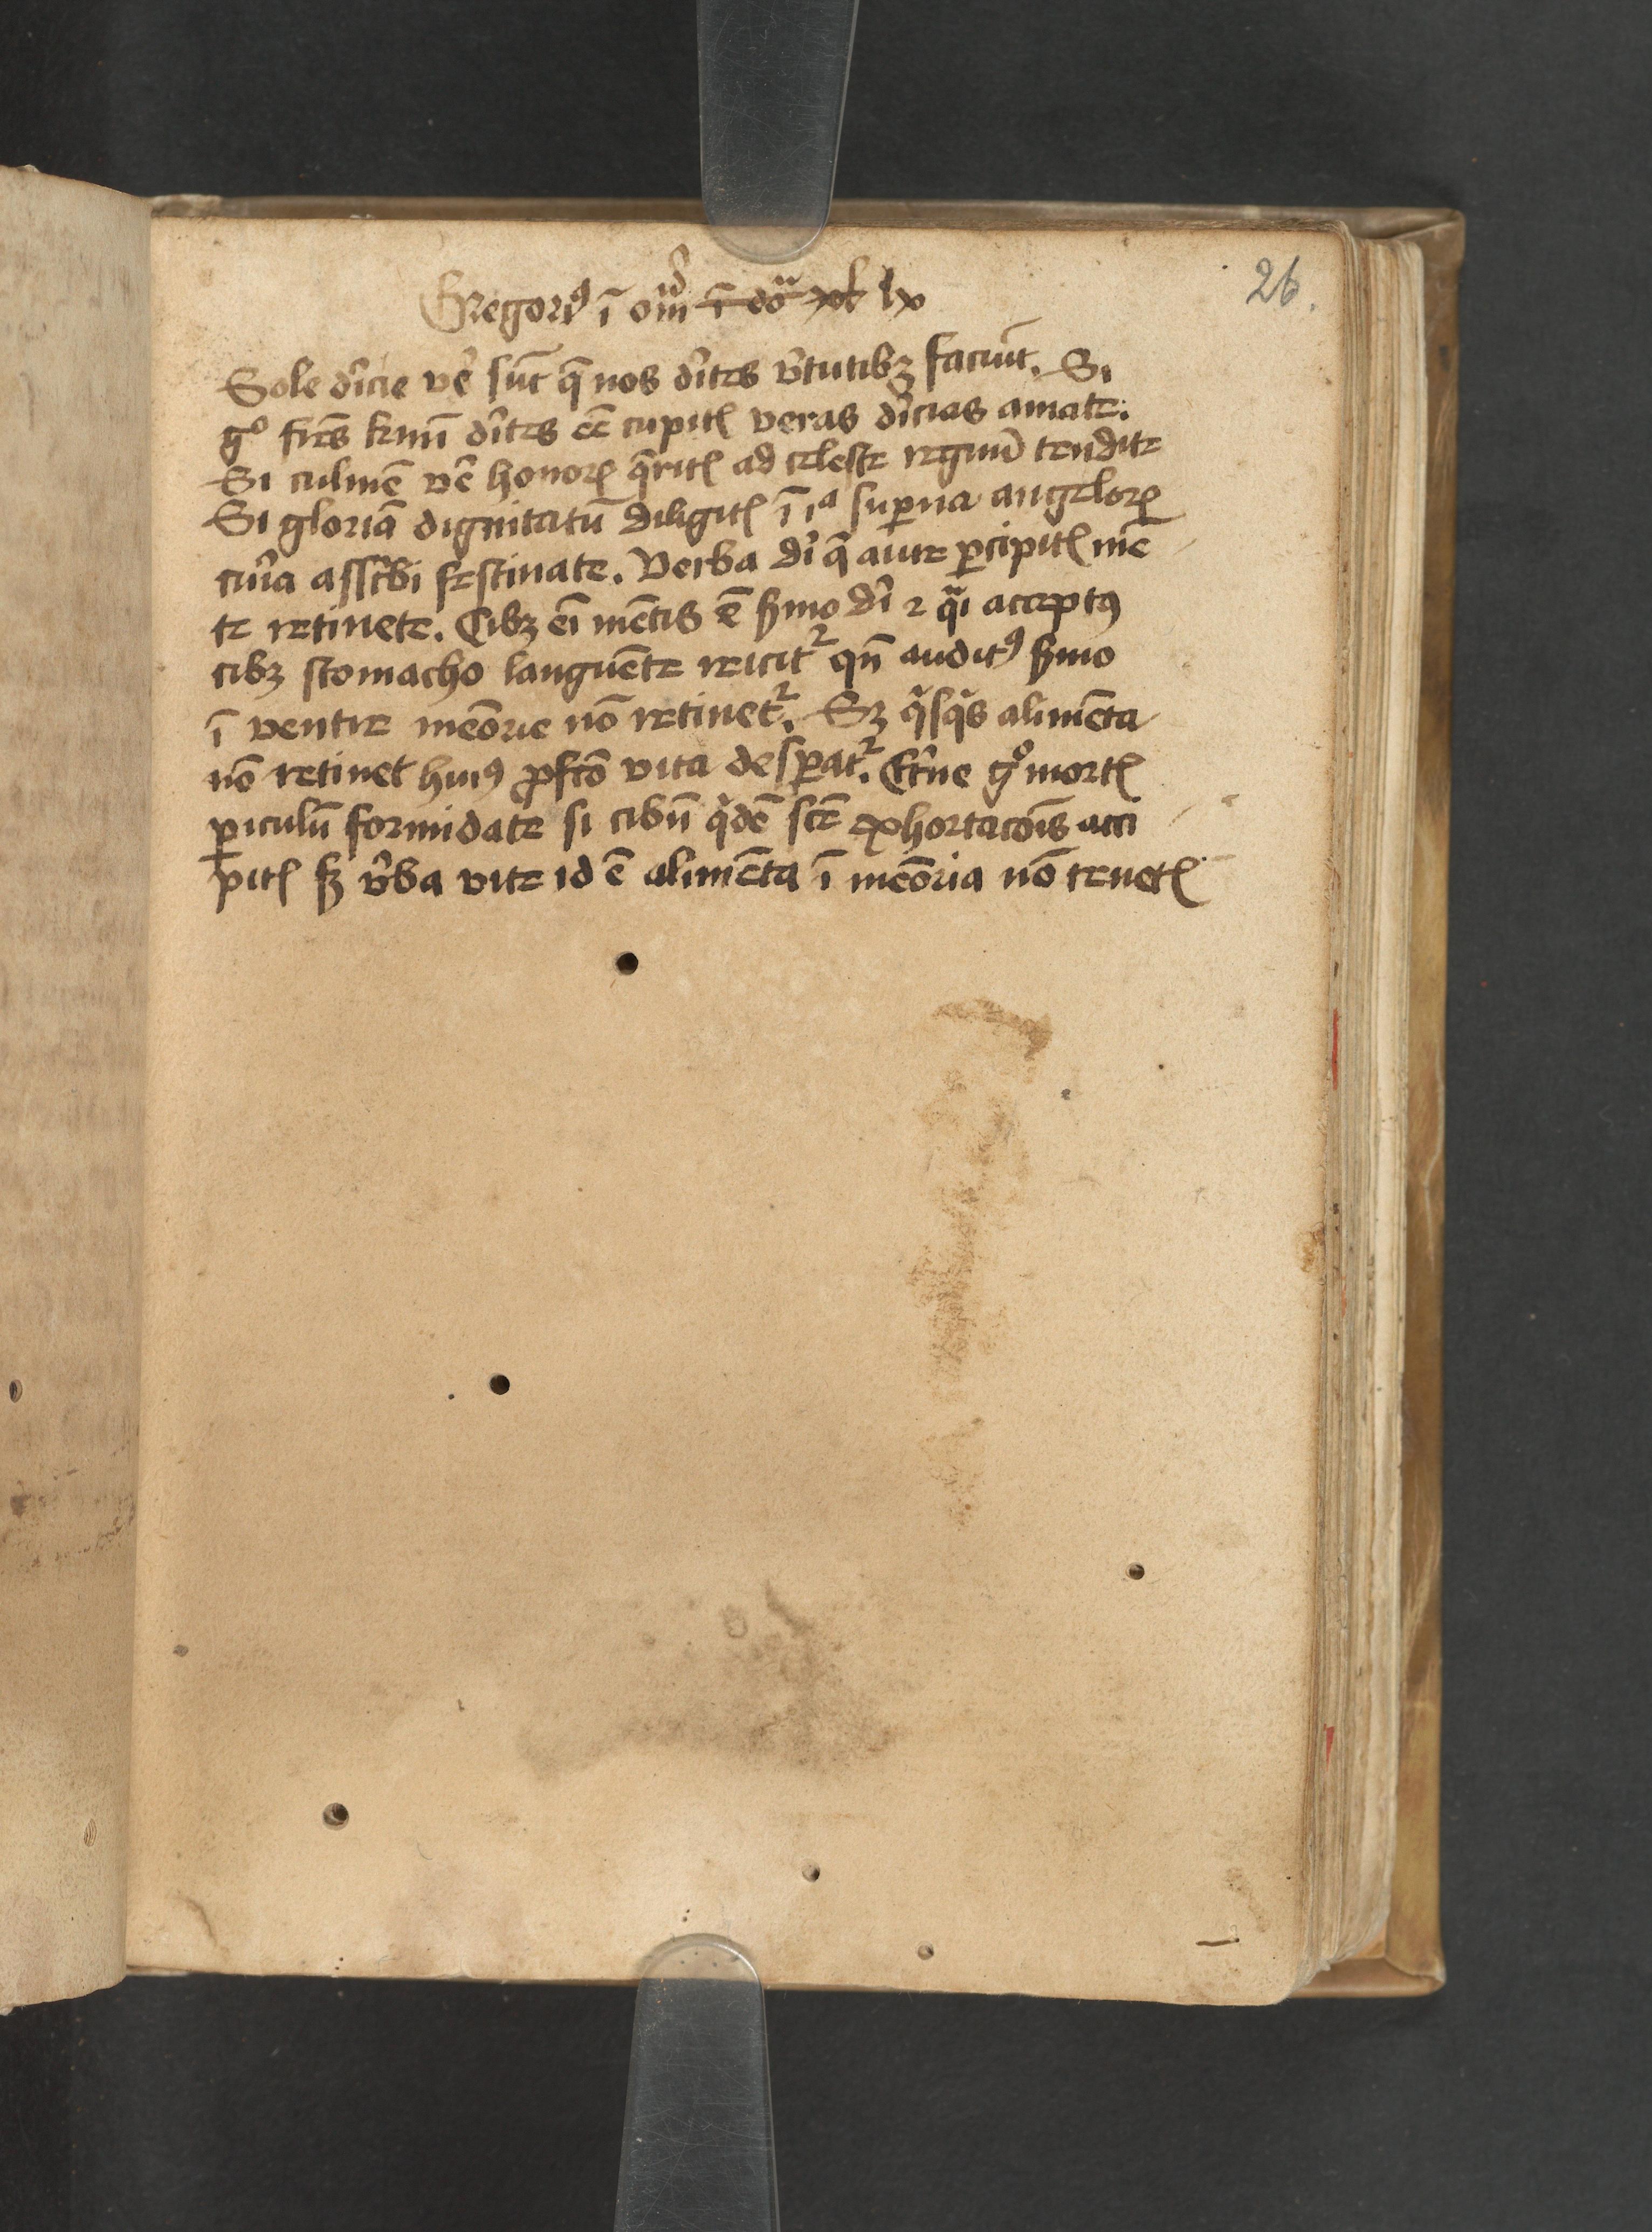 26.
Gregori⁹ ī om̄ lx
Sole di̾cie ve̾ su̅t q̄ nos di̾tes v̾tutibꝫ faciu̅t. Si
gͦ fr̅es kr̅mi di̾tes ee̅ cupitꝭ veras di̾cias amate.
Si culme̅ ve̅ honorꝭ q̄ritꝭ ad celeste regnu̅ tendite
Si gloria̅ dignitatu̅ diligitꝭ ī ıᵃ sup̲na angelorꝝ
cu̾ia ass̾cbi festinate. Verba di̅ q̄ aure p̲cipitꝭ me̅
te retinete. Cibꝫ ei̅ me̅tis e̅ s̾mo di̅ ⁊ qᵃi acceptꝰ
cibꝫ stomacho langue̅te reicit᷑ qn̅ auditꝰ s̾mo
ī ventre meo̅rie no̅ retinet᷑. Sꝫ qͥsqͥs alime̅ta
no̅ retinet huiꝰ ꝓfco̅ vita desp̲at᷑. Et̾ne gͦ mortꝭ
p̲iculu̅ formidate si cibu̅ qͥde̅ sce̅ exhortaco̅is acci
pitꝭ sꝫ v̾ba vite id e̅ alime̅ta ī meo̅ria no̅ tenetꝭ